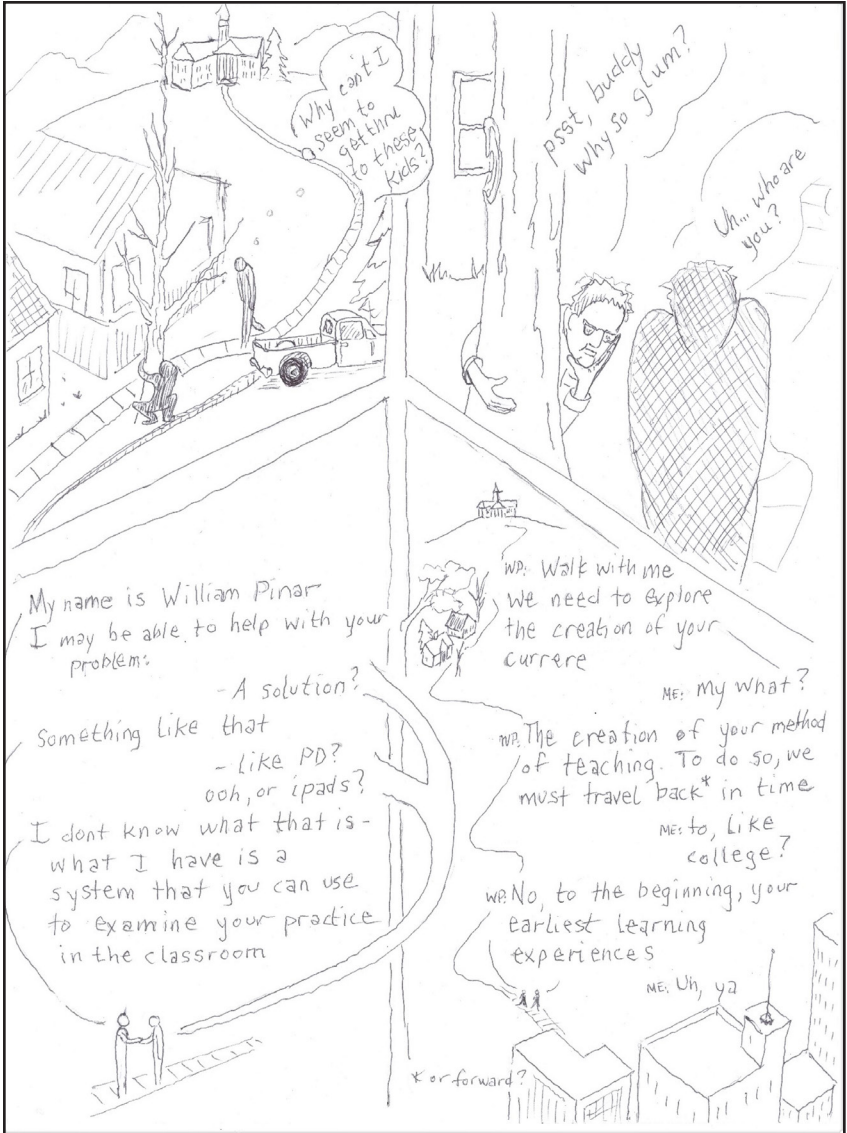 Why can't I
seem to
get thru
to these
kids?
psst, buddy
why so glum?
Uh... who are
you?
My name is William Pinar
I may be able to help with your
problem.
- A solution?
Something like that
- like PD?
ooh, or ipads?
I dont know what that is -
what I have is a
system that you can use
to examine your practice
in the classroom
WP: Walk with me
we need to explore
the creation of your
currere
ME: My what?
WP: The creation of your method
of teaching. To do so, we
must travel back* in time
ME: to, like
college?
WP: No, to the beginning, your
earliest learning
experiences
ME: Uh, ya
* or forward?